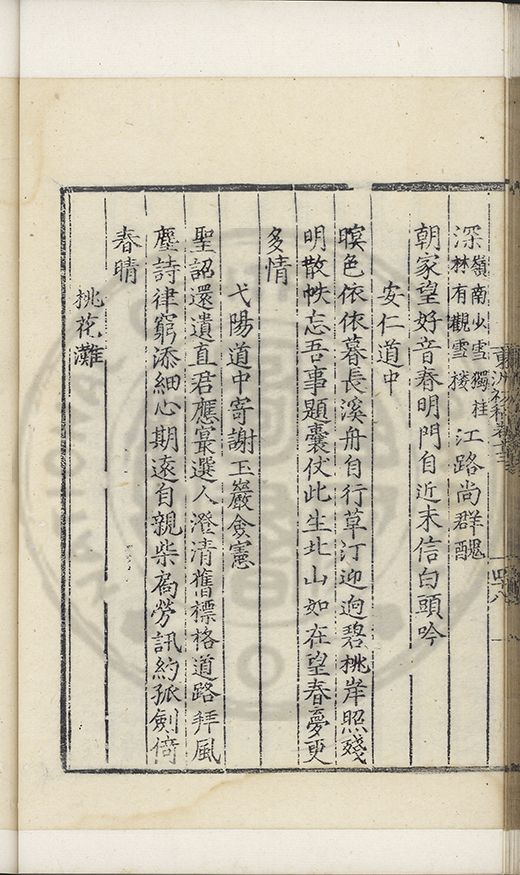 深嶺南少雪獨桂林有觀雪樓江路尚群醜
朝家望好音春明門自近未信白頭吟
安仁道中
暝色依依暮長溪舟自行草汀迎逈碧桃岸照殘
明散帙忘吾事題囊仗此生北山如在望春夢更
多情
弋陽道中寄謝玉巖僉憲
聖詔還遺直君應寔選人澄清舊標格道路拜風
塵詩律窮添細心期遠自親柴扄勞訊約孤劍倚
春晴
桃花灘